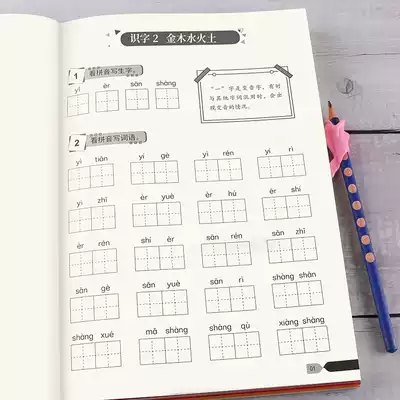 识字 2 金木水火土
1 看拼音写生字。
yī èr sān shàng
“一”字是变音字，有时
与其他字词混用时，会出
现变音的情况。
2 看拼音写词语。
yì tiān yí gè yì rén yí rì
yì zhī èr yuè èr hú èr shí
èr rén shí èr sān rén sān tiān
sān gè sān yuè sān rì shàng shān
shàng xué mǎ shàng shàng qù xiàng shàng
01